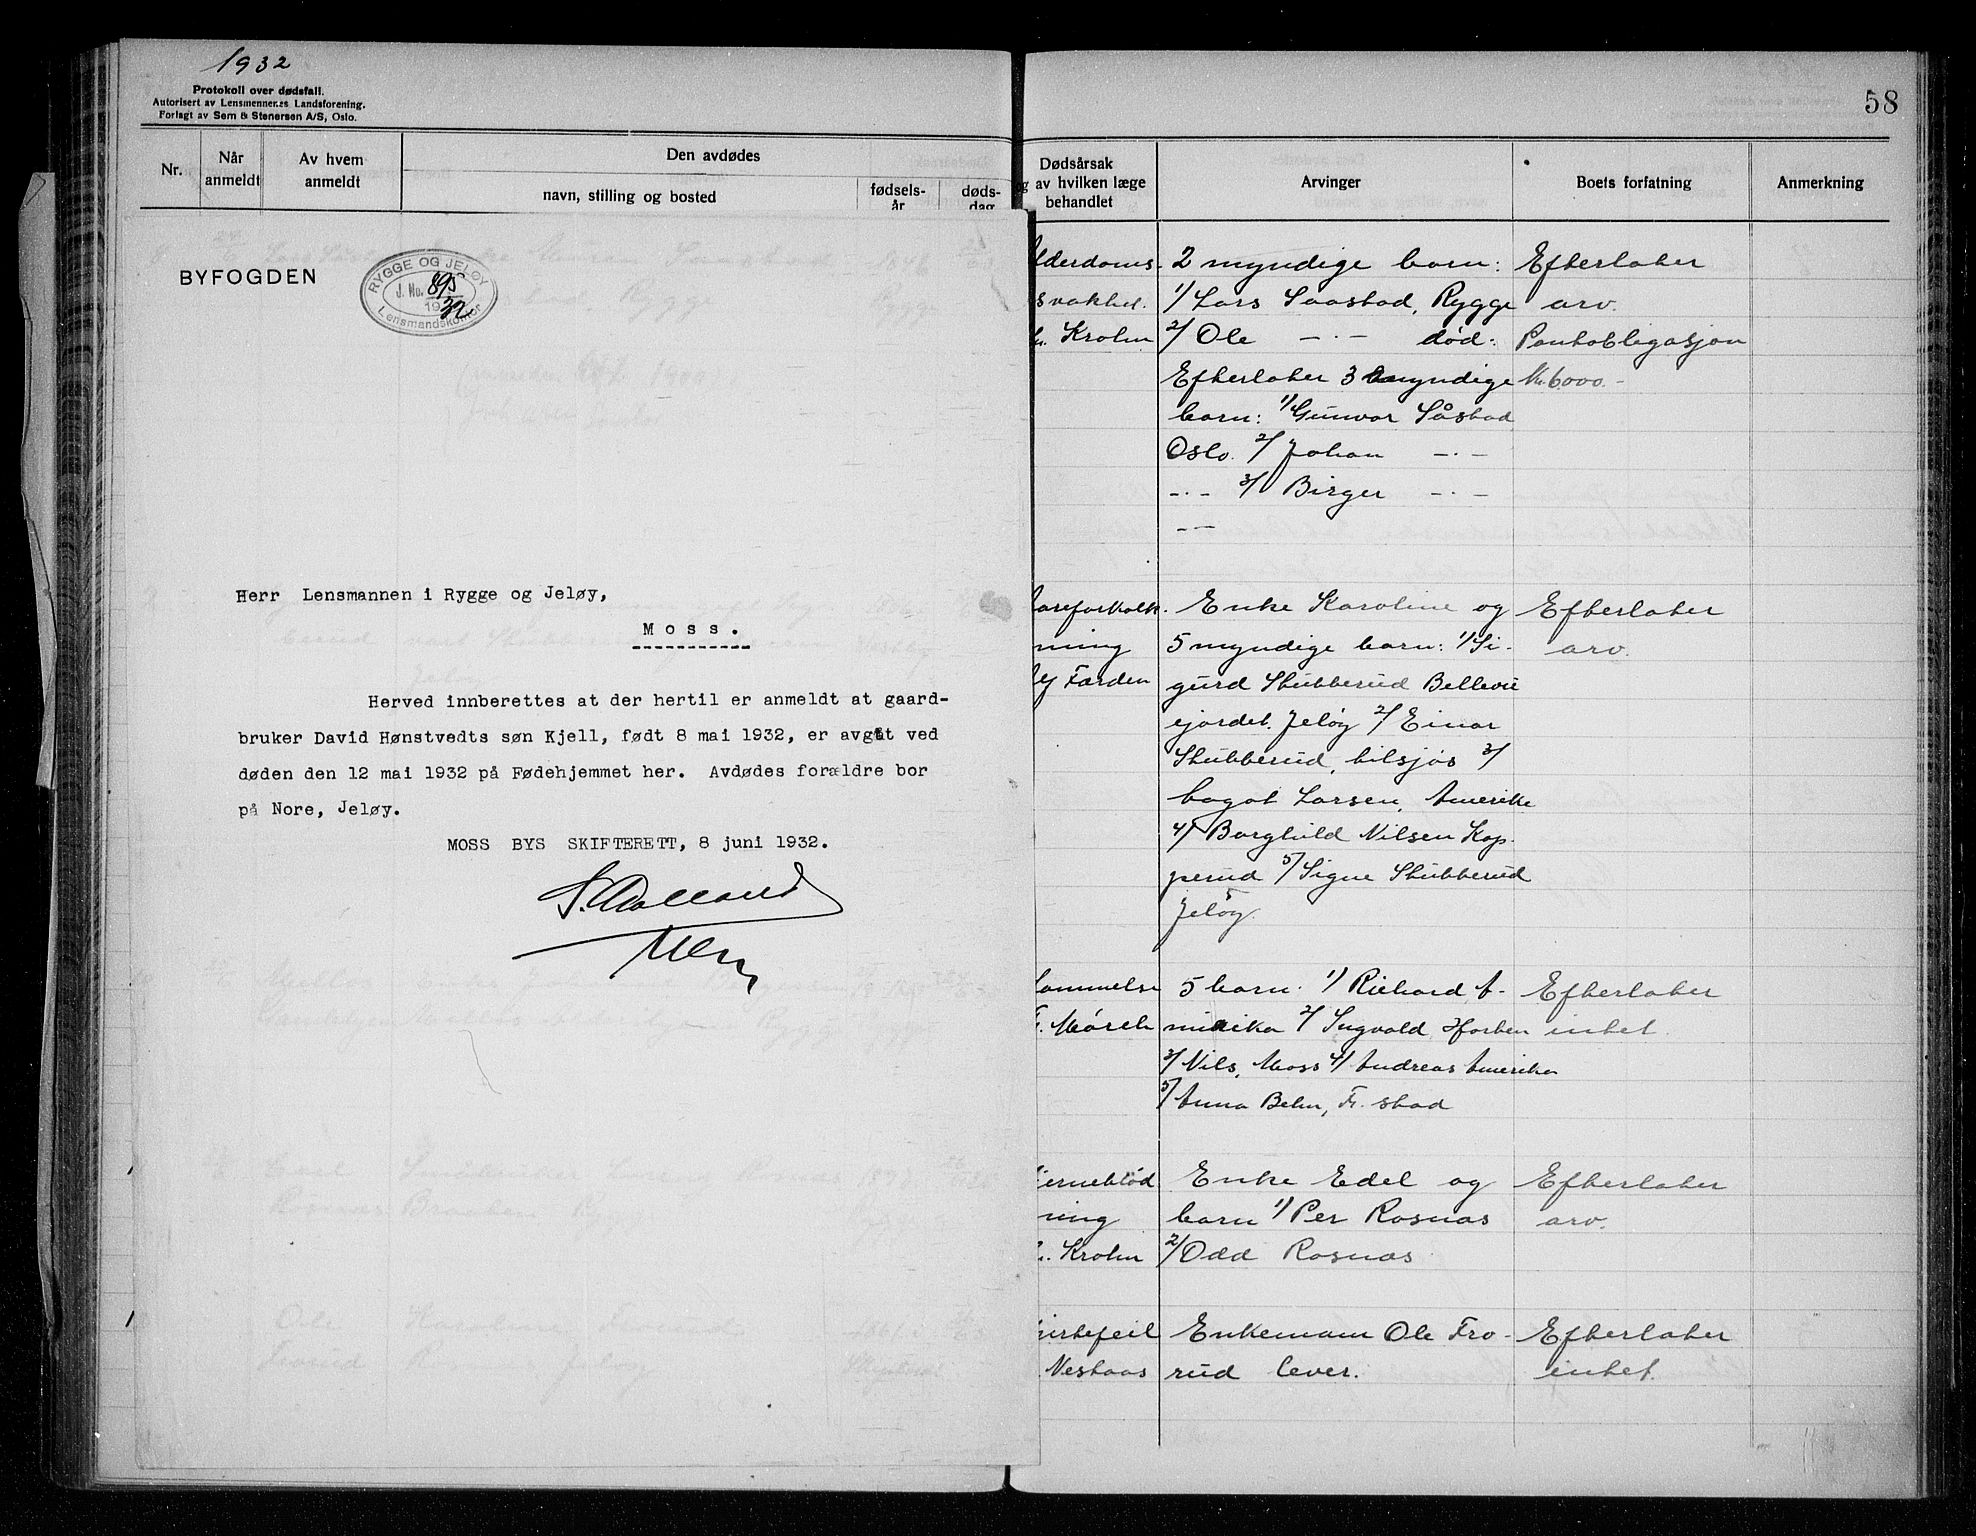 1932
Protokoll over dødsfall.
Autorisert av Lensmennenes Landsforening.
Forlagt av Sem & Stenersen A/S, Oslo.
Nr.
Når anmeldt
Av hvem anmeldt
Den avdødes
navn, stilling og bosted
fødsels-
år
døds-
dag
BYFOGDEN
RYGGE OG JELØY
J. No. 895
1932
Lensmandskontor
Herr Lensmannen i Rygge og Jeløy,
Moss.
Herved innberettes at der hertil er anmeldt at gaard-
bruker David Hønstvedts søn Kjell, født 8 mai 1932, er avgåt ved
døden den 12 mai 1932 på Fødehjemmet her. Avdødes forældre bor
på Nore, Jeløy.
MOSS BYS SKIFTERETT, 8 juni 1932.
58
Dødsårsak
og av hvilken læge
behandlet
Arvinger
Boets forfatning
Anmerkning
lderdoms- 2 myndige barn: Efterlater
svakhet. 1/ Lars Saastad, Rygge arv.
Krohn 2/ Ole —·— død: Pantobligasjon
Efterlater 3 myndige kr. 6000.-
barn: 1/ Gunvor Såstad
Oslo. 2/ Johan —·—
—·— 3/ Birger —·—
—·—
areforkalk- Enke Karoline og Efterlater
ning 5 myndige barn: 1/ Si- arv.
Farden gurd Stubberud Bellevue
ejordet. Jeløy 2/ Einar
Stubberud, bilsjos 3/
Larsen, Amerika
4/ Borghild Nilsen Kop-
perud 5/ Signe Stubberud
Jeløy.
5 barn. 1/ Richard A- Efterlater
Mørch merika 2/ Ingvald, Horten intet.
3/ Nils, Moss 4/ Andreas Amerika
5/ Anna Behn, Fr.stad
jerneblød Enke Edel og Efterlater
ning barn 1/ Per Rosnæs arv.
Krohn 2/ Odd Rosnæs
jertefeil Enkemann Ole Fro- Efterlater
Nestaas rud lever. intet.